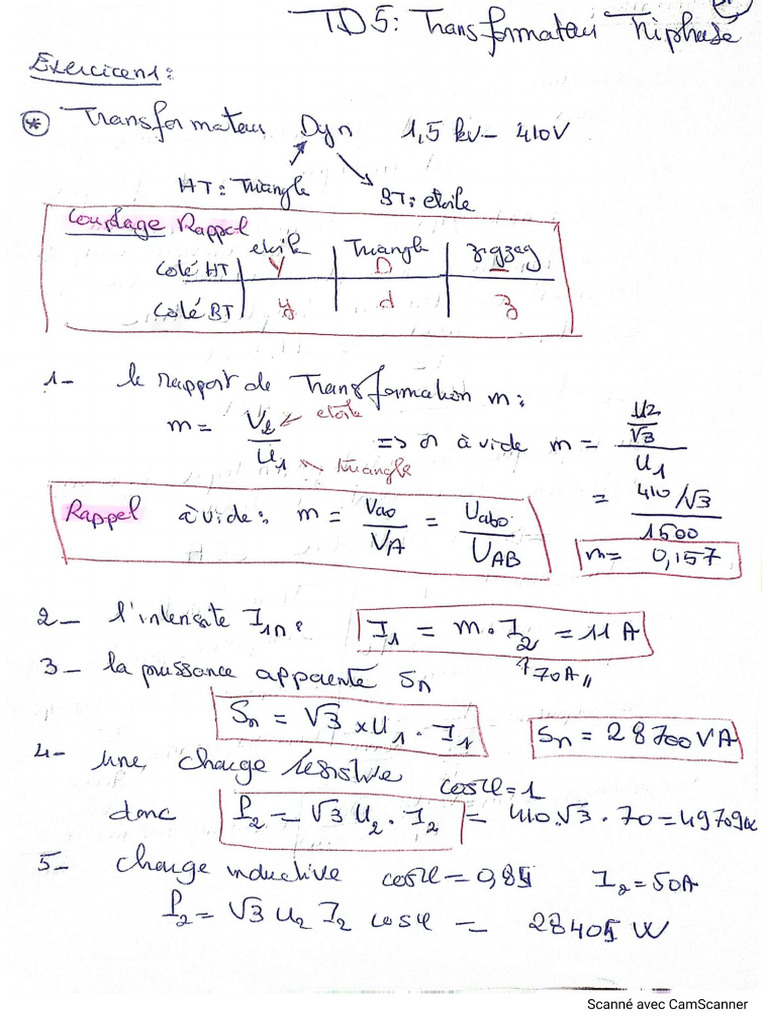 TD5: Transformateur Triphasé
Exercice n1:
* Transformateur Dyn 1,5 kv - 410V
HT: Triangle BT: etoile
Couplage Rappel
etoile Triangle zigzag
Coté HT Y D Z
Coté BT y d z
1- le rapport de Transformation m:
m = V2/U1 etoile triangle => or à vide m = (U2/√3)/U1
= (410/√3)/1500
Rappel à vide: m = Vao/VA = Uabo/UAB
m = 0,157
2- l'intensité I1n: I1 = m . I2 = 11 A
70A
3- la puissance apparente Sn
Sn = √3 x U1 . I1 Sn = 28700 VA
4- une charge résistive cosφ = 1
donc P2 = √3 U2 . I2 = 410.√3 . 70 = 49709W
5- charge inductive cosφ = 0,85 I2 = 50A
P2 = √3 U2 I2 cosφ = 28405 W
Scanné avec CamScanner